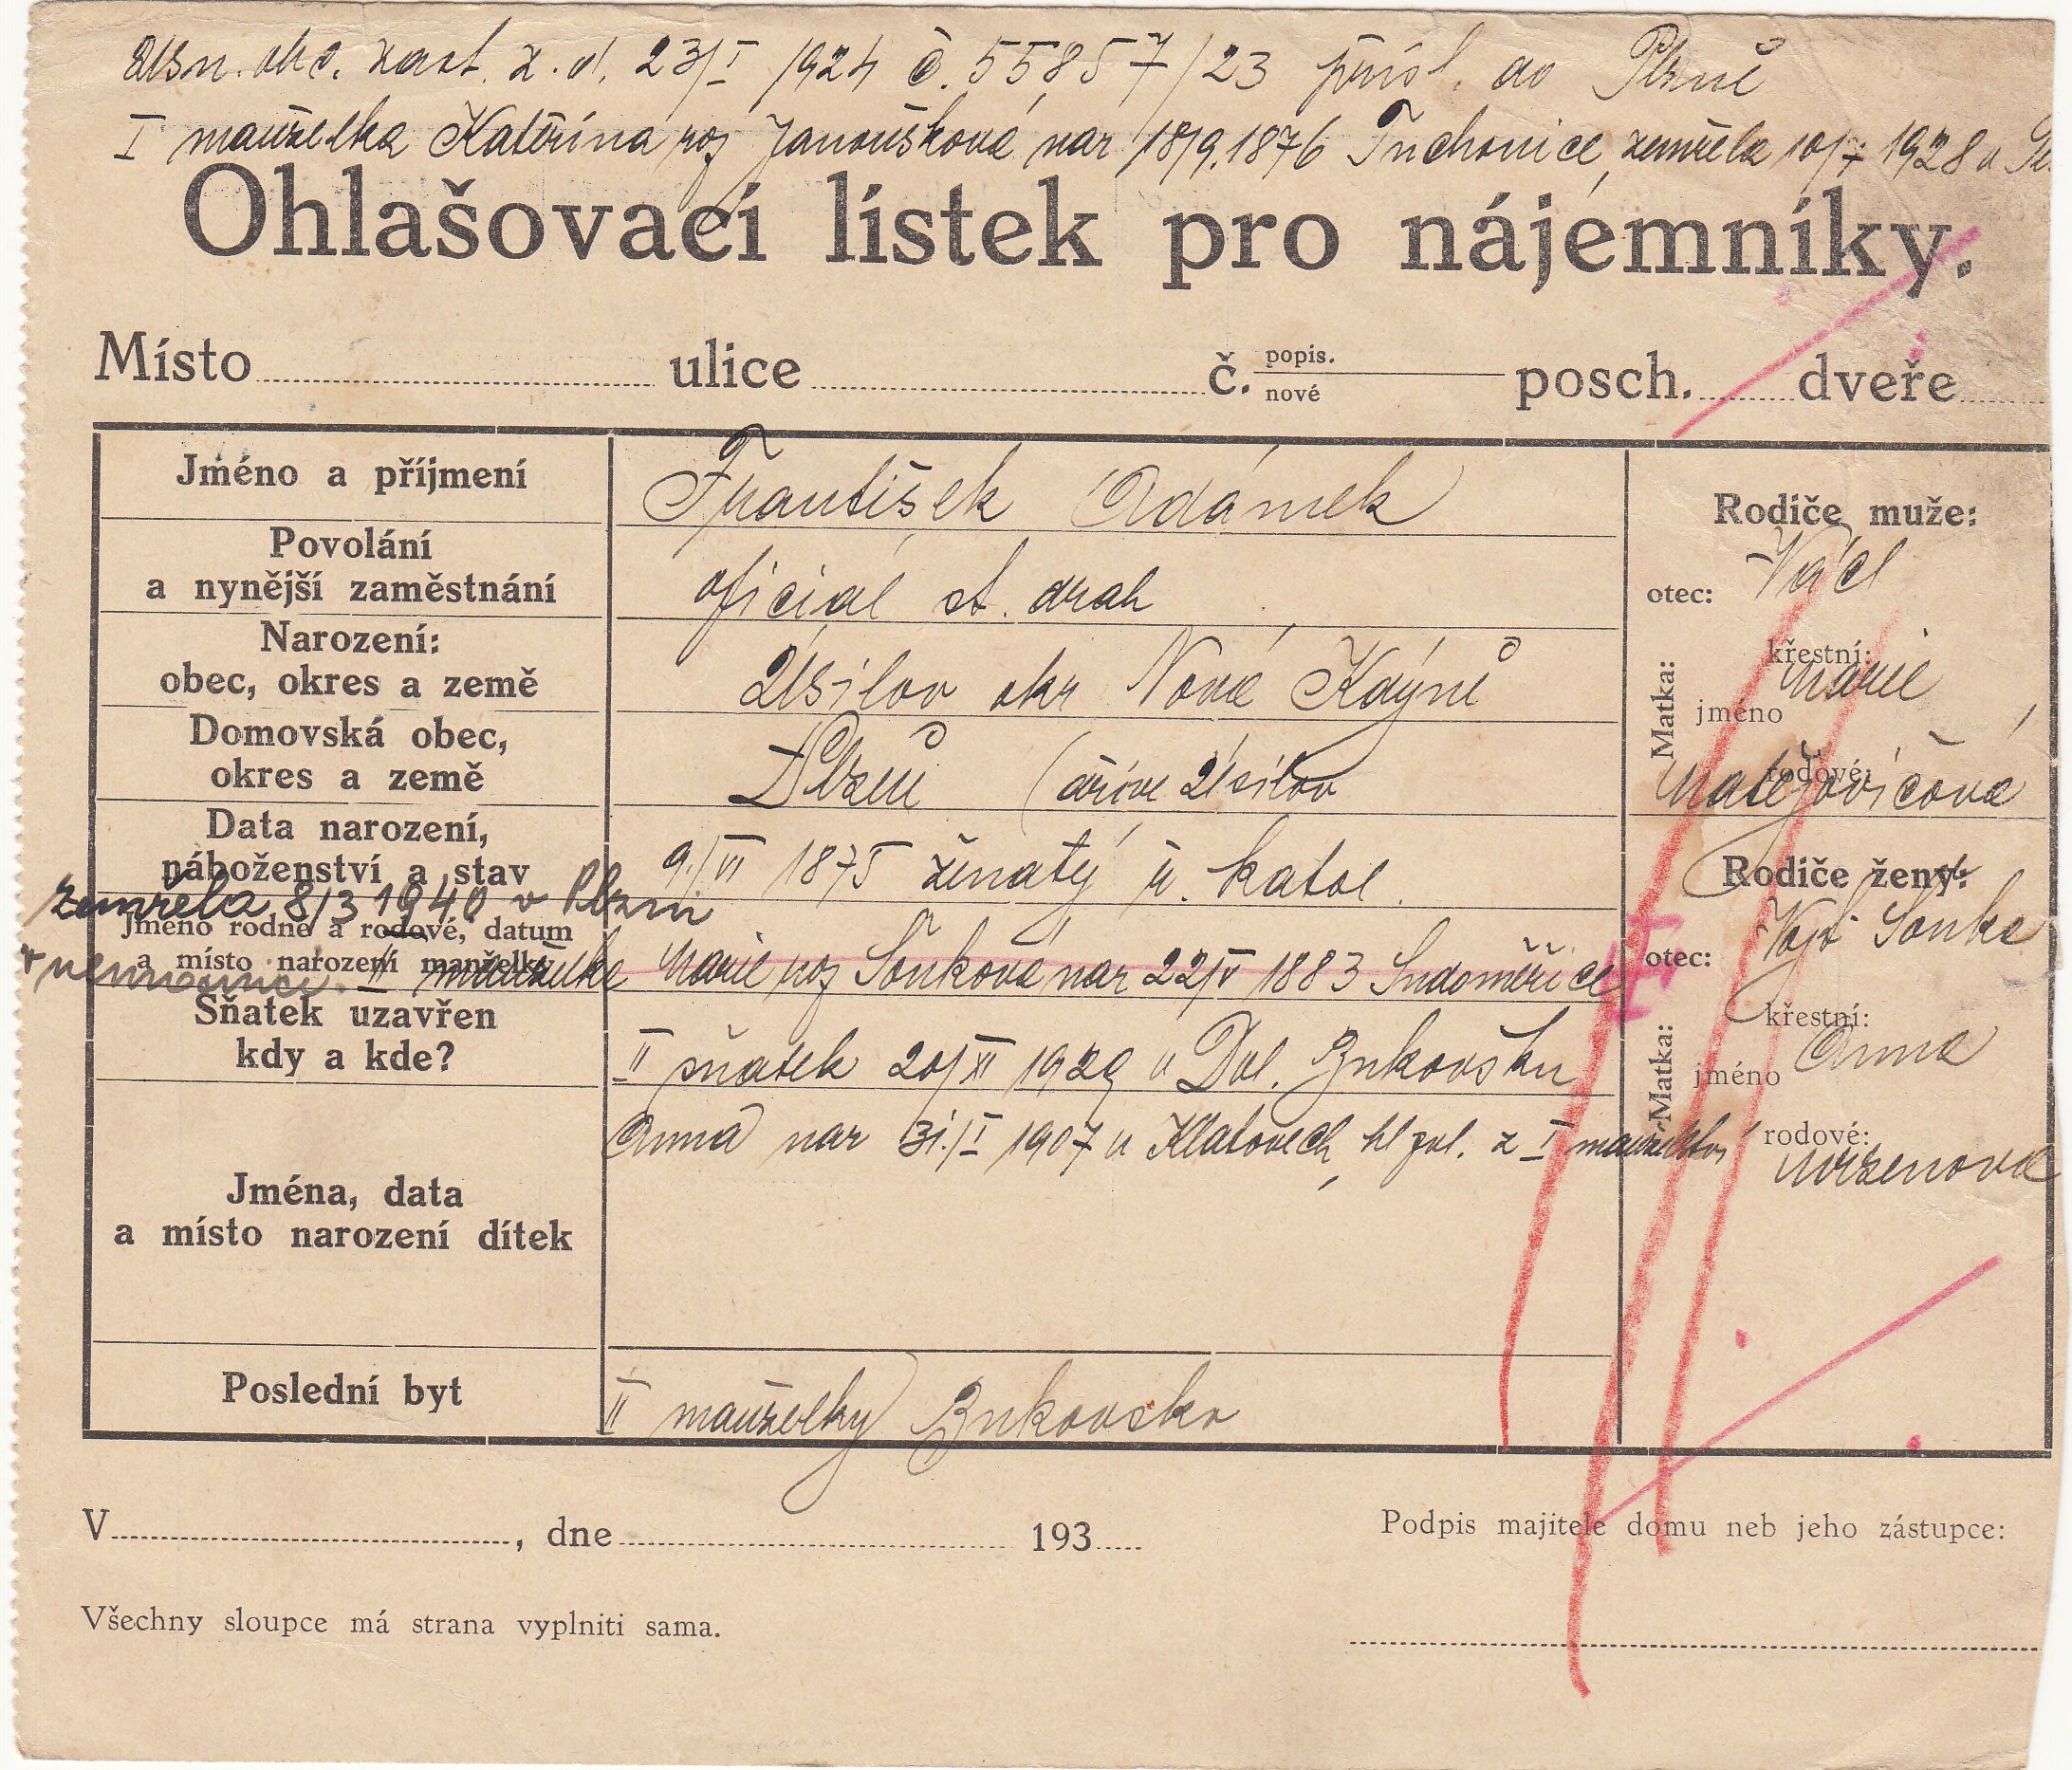 Usn. obc. zast. z. d. 23/I 1924 č. 55857/23 přísl. do Plzně
I manželka Kateřina roz Janoušková nar 18/9. 1876 Tuchonice, zemřela 10/7 1928 v
Ohlašovací lístek pro nájemníky.
Místo ulice č. popis. nové posch. dveře
Jméno a příjmení František Adámek
Povolání
a nynější zaměstnání oficial st. drah
Narození:
obec, okres a země Úsilov okr Nová Kdýně
Domovská obec,
okres a země Plzeň (dříve Úsilov
Data narození,
náboženství a stav 9./VI 1875 ženatý ř. katol.
zemřela 8/3 1940 v Plzni
Jméno rodné a rodové, datum
a místo narození manželky
v nemocnici. II manželka Marie roz Soňková nar 22/V 1883 Sudoměřice
Sňatek uzavřen
kdy a kde? II sňatek 20/XI 1929 v Dol. Bukovsku
Jména, data
a místo narození dítek
Anna nar 31./I 1907 v Klatovech, z I manželství
Poslední byt II manželky Bukovsko
Rodiče muže:
otec: Václ
Matka:
křestní: Marie
jméno
rodové: Matějovičová
Rodiče ženy:
otec: Vojt Soňka
Matka:
křestní: Anna
jméno
rodové:
V , dne 193
Podpis majitele domu neb jeho zástupce:
Všechny sloupce má strana vyplniti sama.